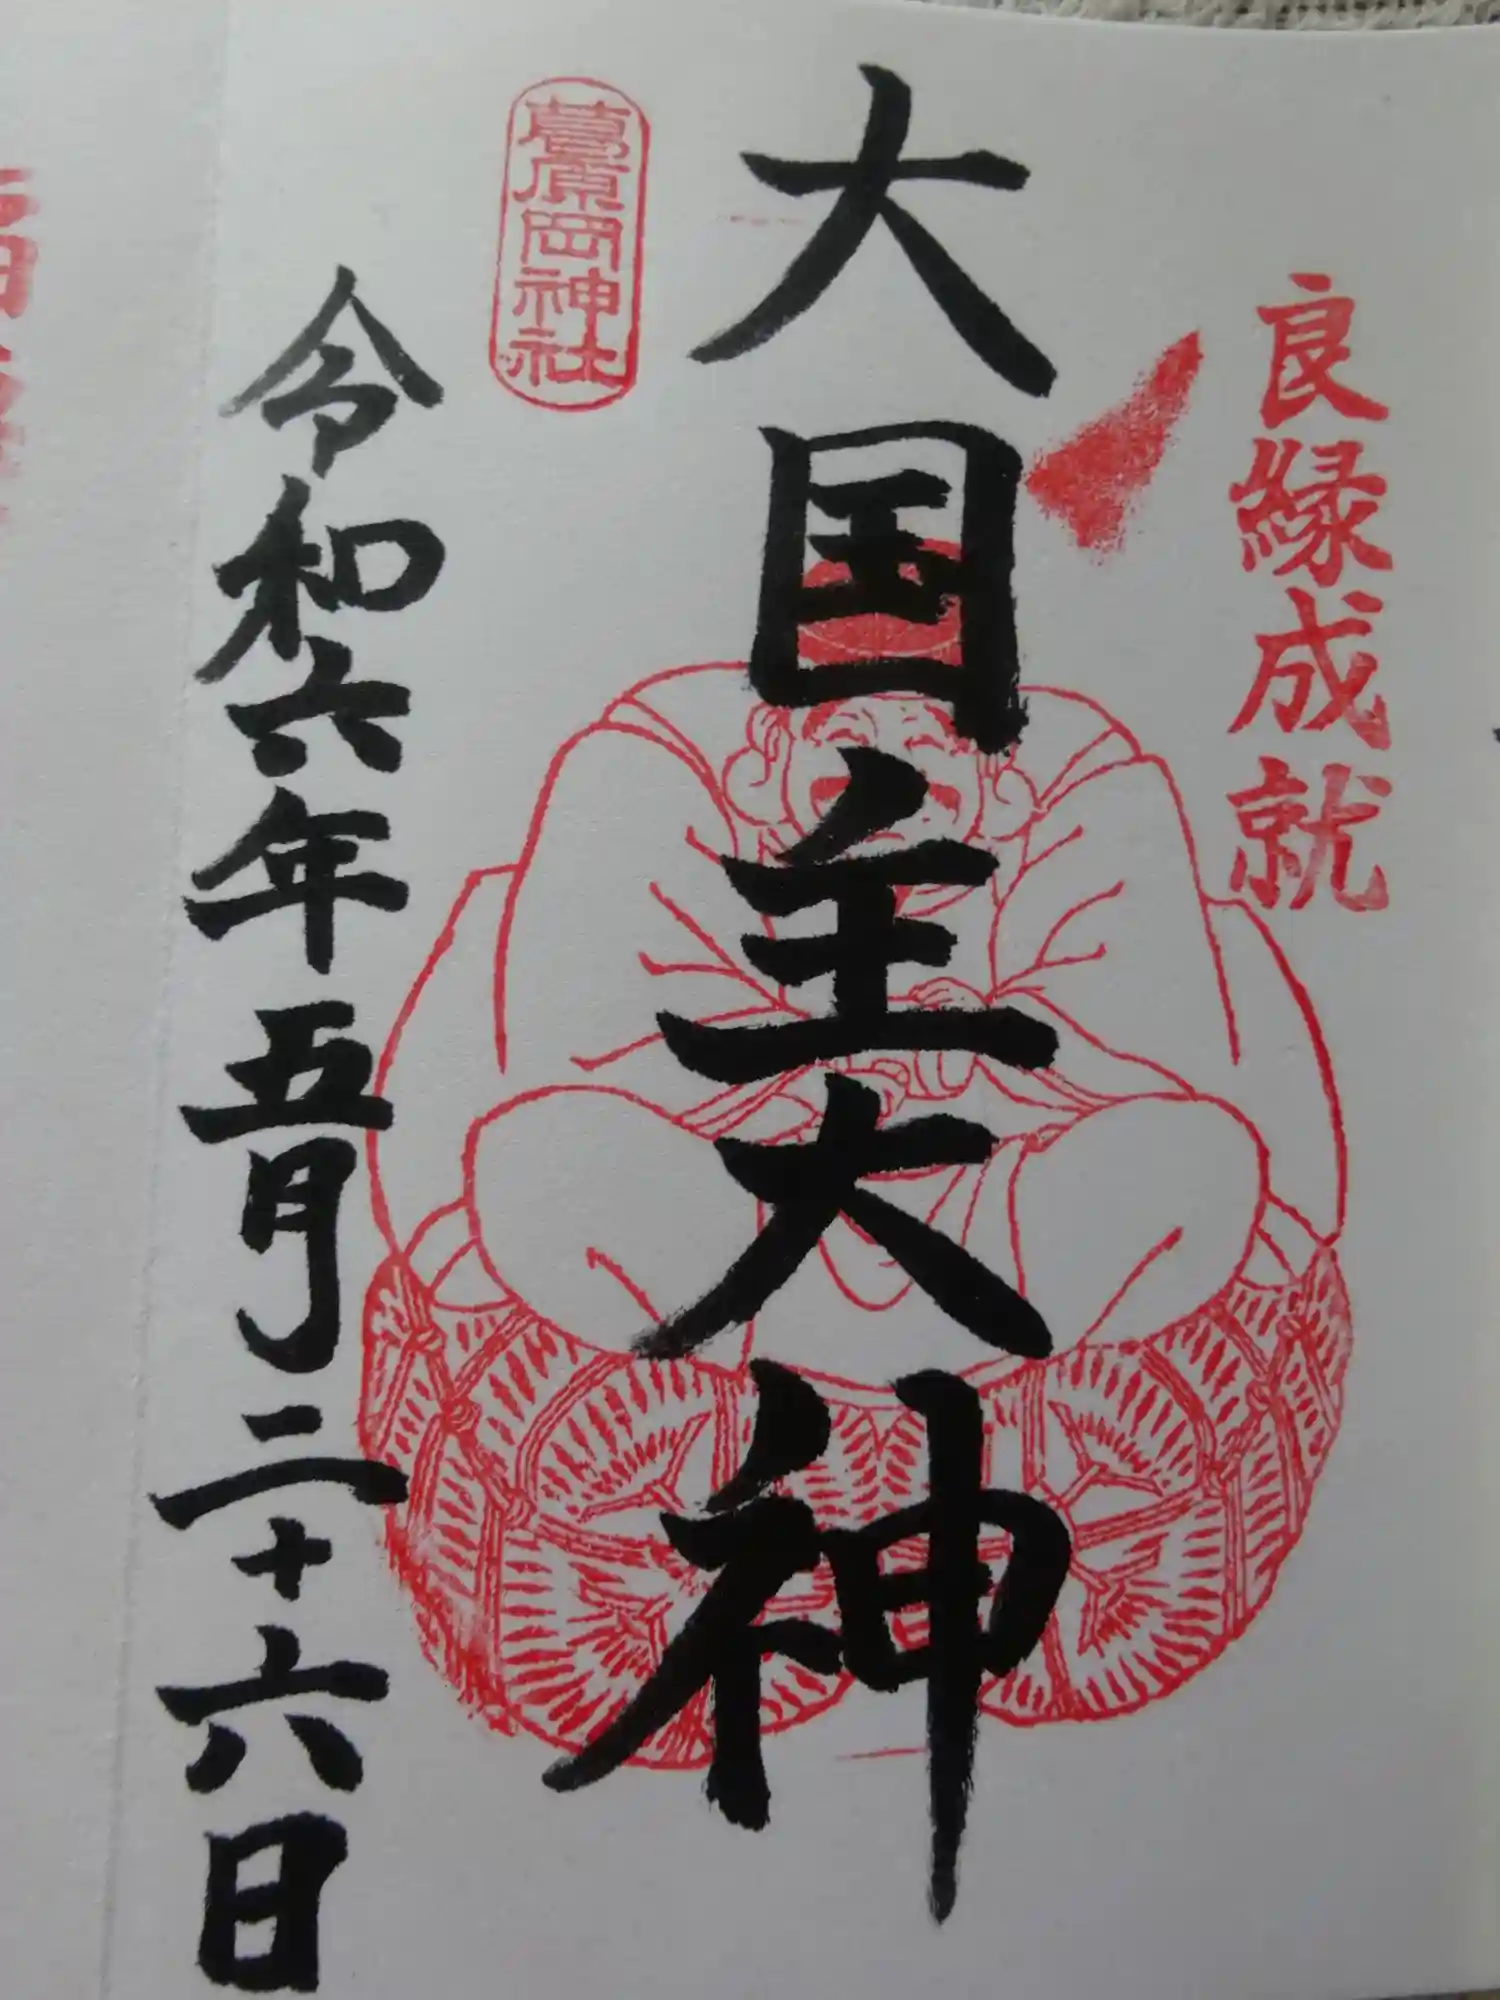 良縁成就
大国主大神
葛原岡神社
令和六年五月二十六日